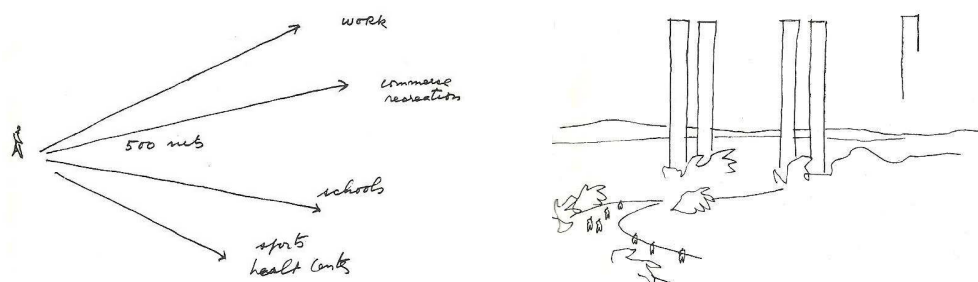 work
commerse
recreation
500 mts
schools
sports
healt centers